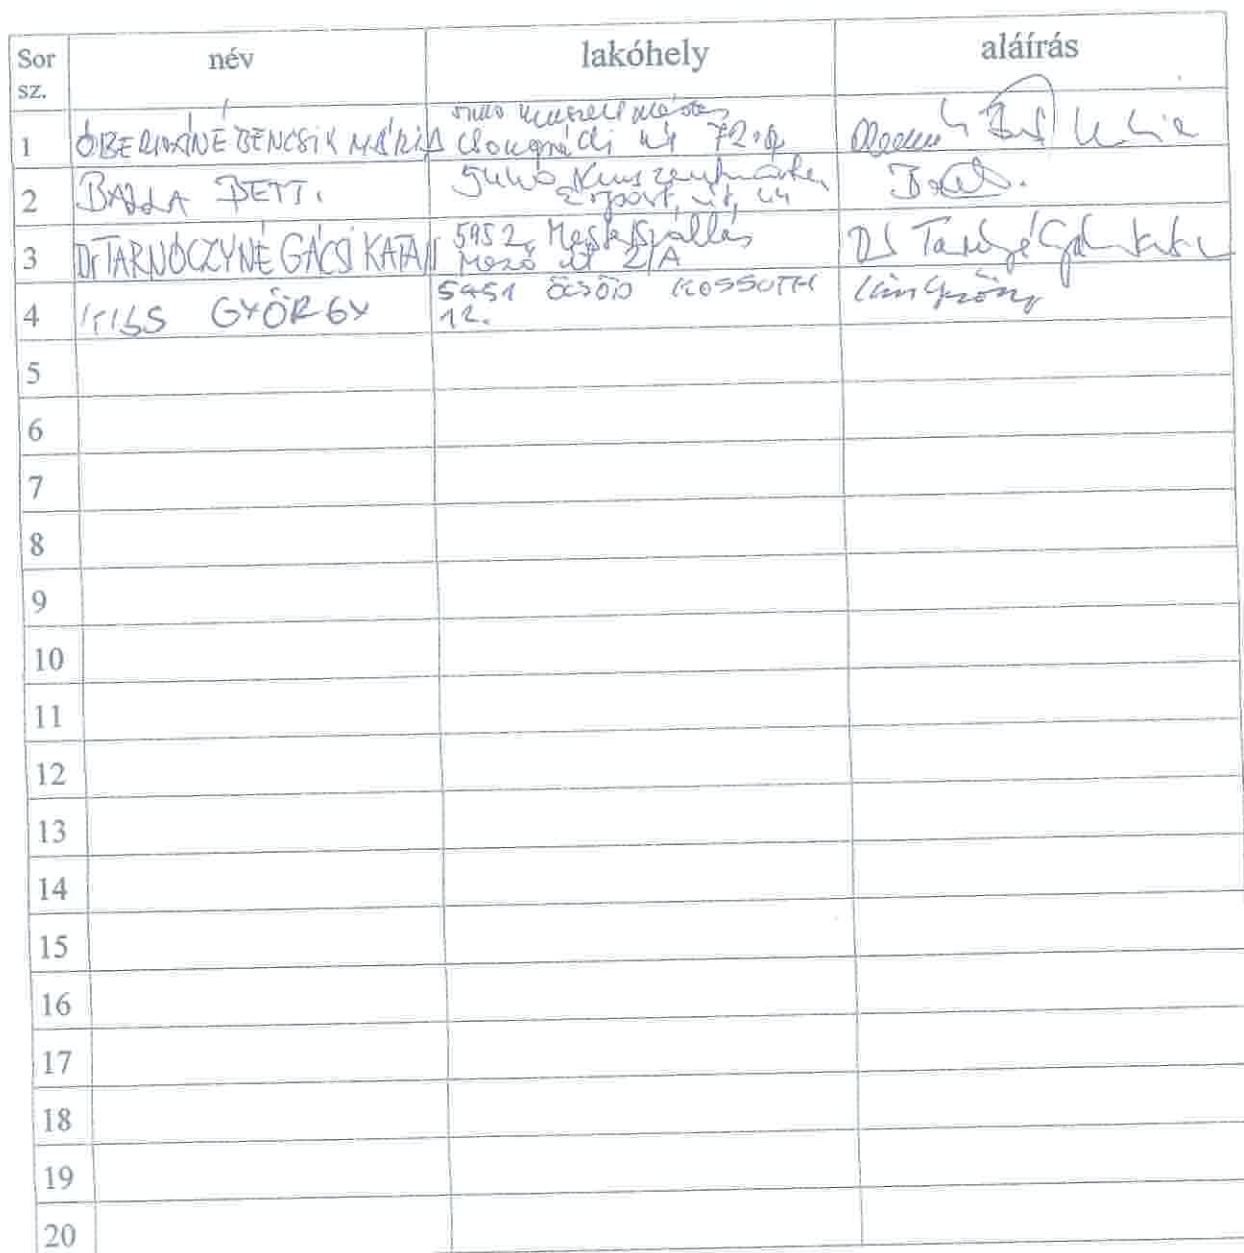 Sor sz. név lakóhely aláírás
1 ÓBERMANÉ BENCSIK MÁRIA 5440 Kunszentmárton
Csongrádi út 72.
2 BALLA BETT. 5440 Kunszentmárton
út, 44
3 Dr TARNÓCZYNÉ GÁCSI KATA 5452, Mesterszállás
Mező út 2/A
4 KISS GYÖRGY 5451 ÖCSÖD KOSSUTH
12. Kiss György
5
6
7
8
9
10
11
12
13
14
15
16
17
18
19
20